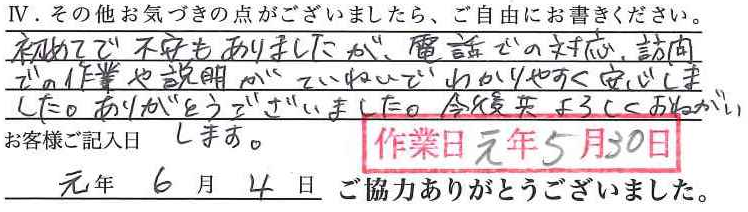 Ⅳ．その他お気づきの点がございましたら、ご自由にお書きください。
初めてで不安もありましたが、電話での対応、訪問
での作業や説明がていねいでわかりやすく安心しま
した。ありがとうございました。今後共よろしくおねがい
します。
お客様ご記入日
作業日 元年5月30日
元年 6月 4日 ご協力ありがとうございました。